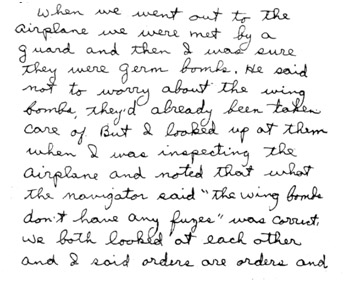 When we went out to the
airplane we were met by a
guard and then I was sure
they were germ bombs. He said
not to worry about the wing
bombs, they'd already been taken
care of. But I looked up at them
when I was inspecting the
airplane and noted that what
the navigator said "the wing bombs
don't have any fuzes" was correct.
We both looked at each other
and I said orders are orders and